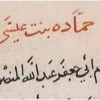 حمادة بنت عيسى
م ابي جعفر عبد الله المنصـ